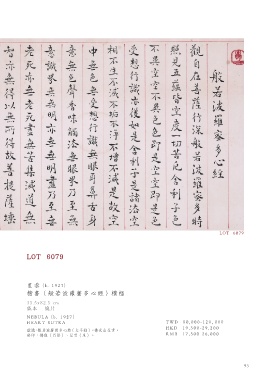 般若波羅蜜多心經
觀自在菩薩行深般若波羅蜜多時
照見五蘊皆空度一切苦厄舍利子色
不異空空不異色色即是空空即是色
受想行識亦復如是舍利子是諸法空
相不生不滅不垢不淨不增不減是故空
中無色無受想行識無眼耳鼻舌身
意無色聲香味觸法無眼界乃至無
意識界無無明亦無無明盡乃至無
老死亦無老死盡無苦集滅道無
智亦無得以無所得故菩提薩埵
LOT 6079
LOT 6079
星雲 (b. 1927)
楷書《般若波羅蜜多心經》橫幅
紙本 鏡片
NEBULA (b. 1927)
HEART SUTRA
TWD
HKD
RMB